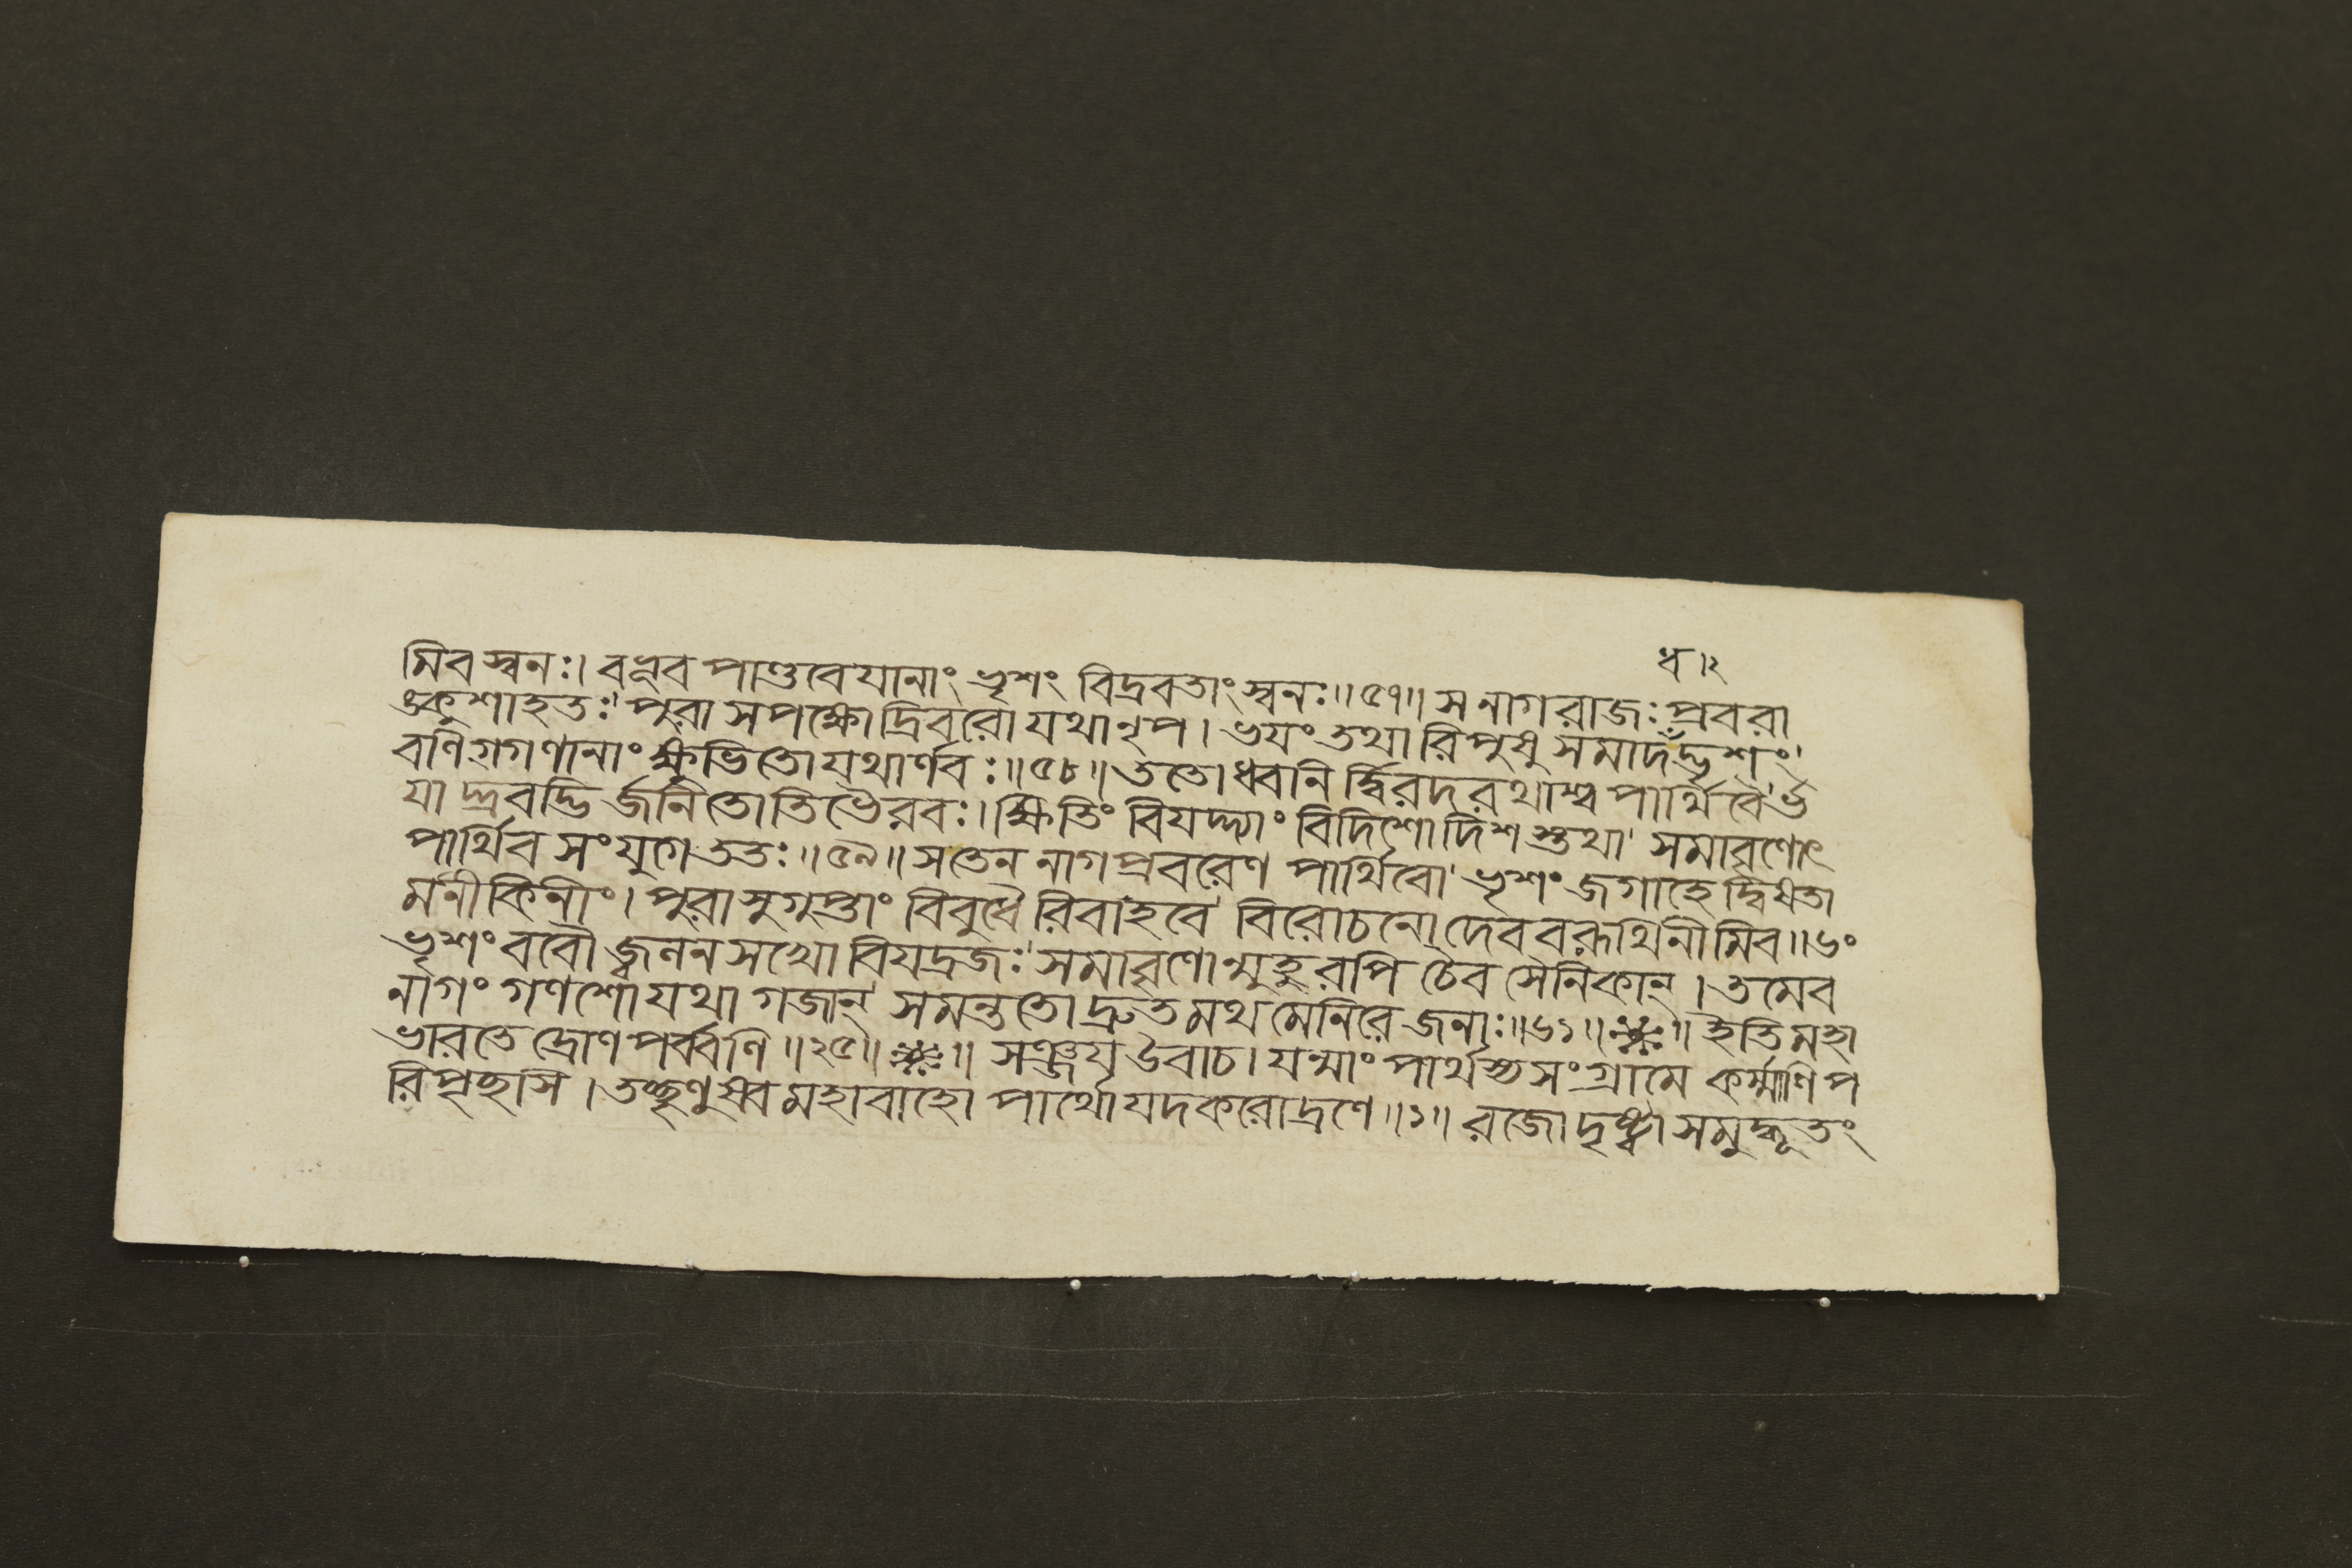 ধ ।২
মিব স্বনঃ। বভূব পাণ্ডবেযানাং ভৃশং বিদ্রবতাং স্বনঃ॥৫৭॥ স নাগরাজঃ প্রবরা
ঙ্কুশাহতঃ' পুরা সপক্ষোদ্রিবরো যথা নৃপ। ভযং তথা রিপুষু সমাদঁদ্ভৃশং'
বণিগ্গণানাং ক্ষুভিতো যথার্ণবঃ॥৫৮॥ ততো ধ্বনির্দ্বিরদরথাশ্বপার্থিবৈ'র্ভ
যাদ্দ্রবদ্ভির্জনিতোতিভৈরবঃ। ক্ষিতিং বিযদ্দ্যাং বিদিশো দিশস্তথা' সমাবৃণোৎ
পার্থিব সংযুগে ততঃ॥৫৯॥ স তেন নাগপ্রবরেণ পার্থিবো' ভৃশং জগাহে দ্বিষতা
মনীকিনীং। পুরা সুগুপ্তাং বিবুধৈরিবাহবে' বিরোচনো দেববরূথিনীমিব॥৬০
ভৃশং ববৌ জ্বলনসখো বিযদ্রজঃ' সমাবৃণোন্মুহুরপি চৈব সৈনিকান্। তমেব
নাগং গণশো যথা গজান্' সমন্ততো দ্রুতমথ মেনিরে জনাঃ॥৬১॥ ॥ ইতি মহা
ভারতে দ্রোণপর্ব্বণি॥২৫॥ ॥ সঞ্জয উবাচ। যন্মাং পার্থস্য সংগ্রামে কর্ম্মাণি প
রিপৃচ্ছসি। তচ্ছৃণুষ্ব মহাবাহো পার্থো যদকরোদ্রণে॥১॥ রজো দৃষ্ট্বা সমুদ্ভূতং